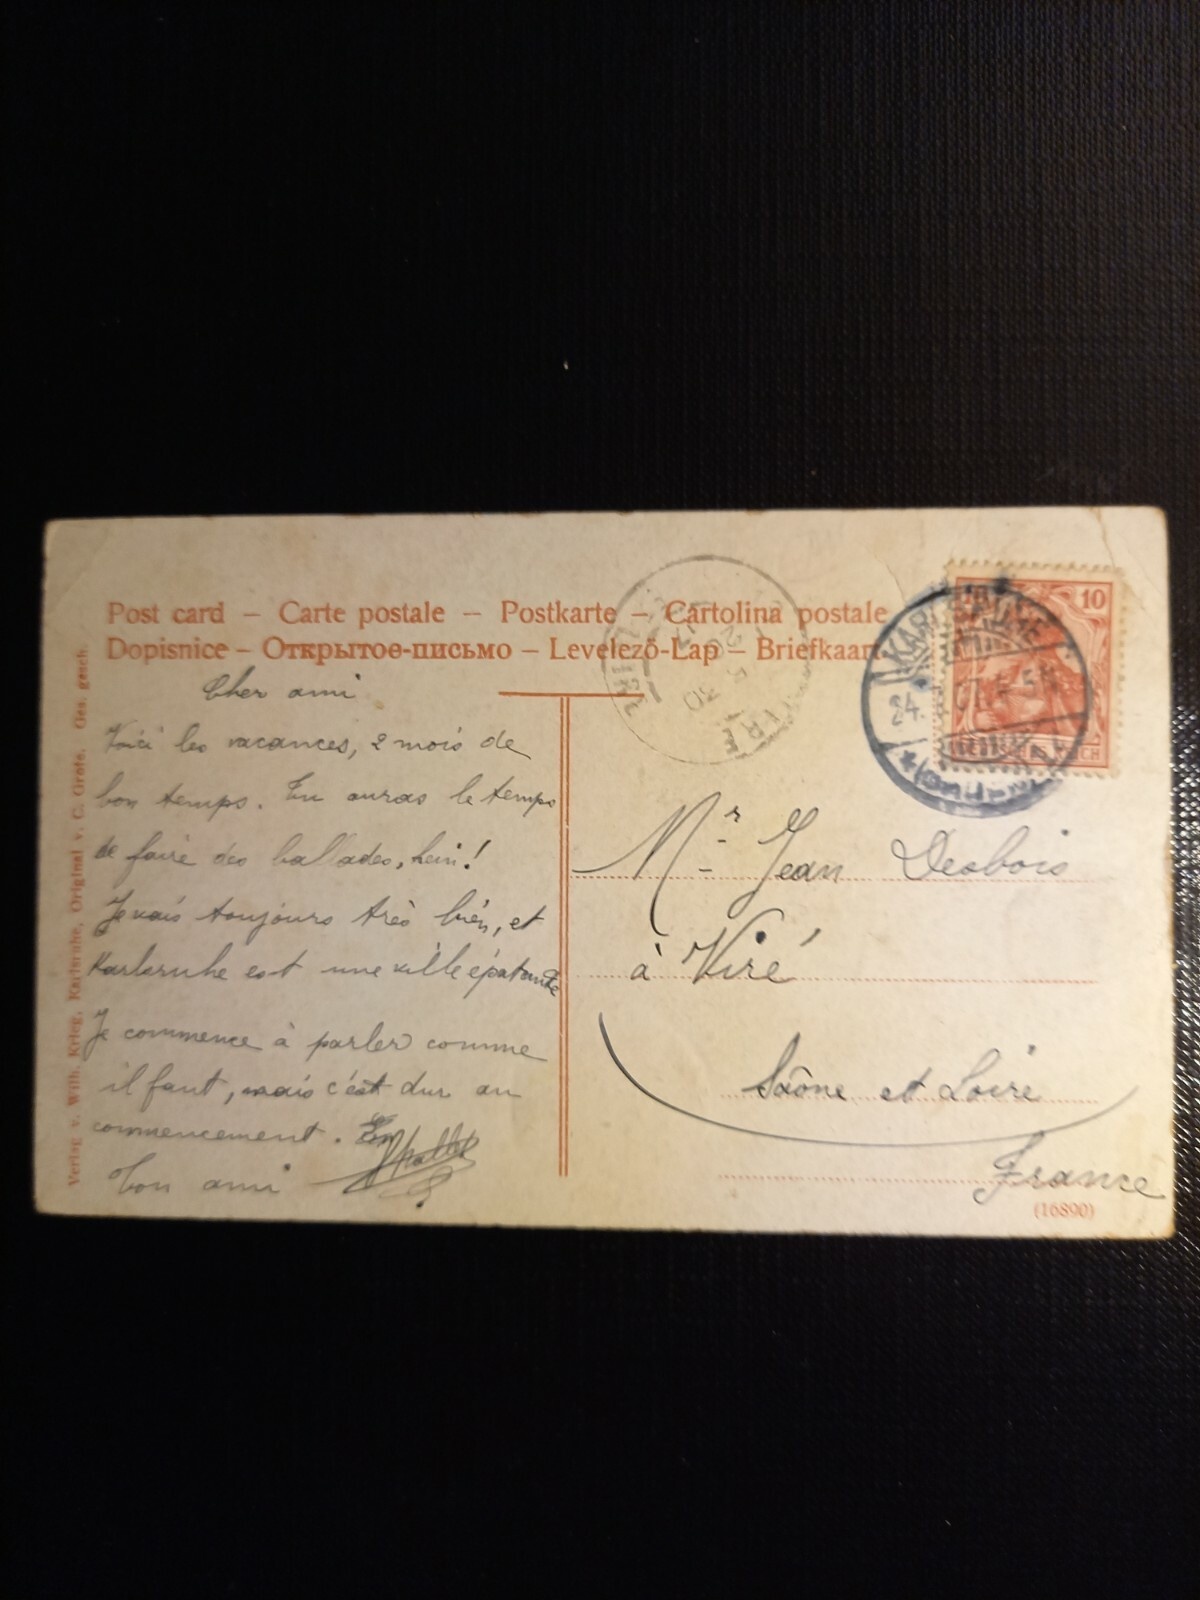 Post card – Carte postale – Postkarte – Cartolina postale
Dopisnice – Открытое-письмо – Levelező-Lap – Briefkaart
Cher ami
Voici les vacances, 2 mois de
bon temps. Tu auras le temps
de faire des ballades, hein!
Je vais toujours très bien, et
Karlsruhe est une ville épatante
Je commence à parler comme
il faut, mais c'est dur au
commencement.
Ton ami
Verlag v. Wilh. Krieg, Karlsruhe, Original v. C. Gräfe. Ges. gesch.
10
KARLSRUHE
24.
(BADEN)
Mr Jean Desbois
à Viré
Saône et Loire
France
(16890)